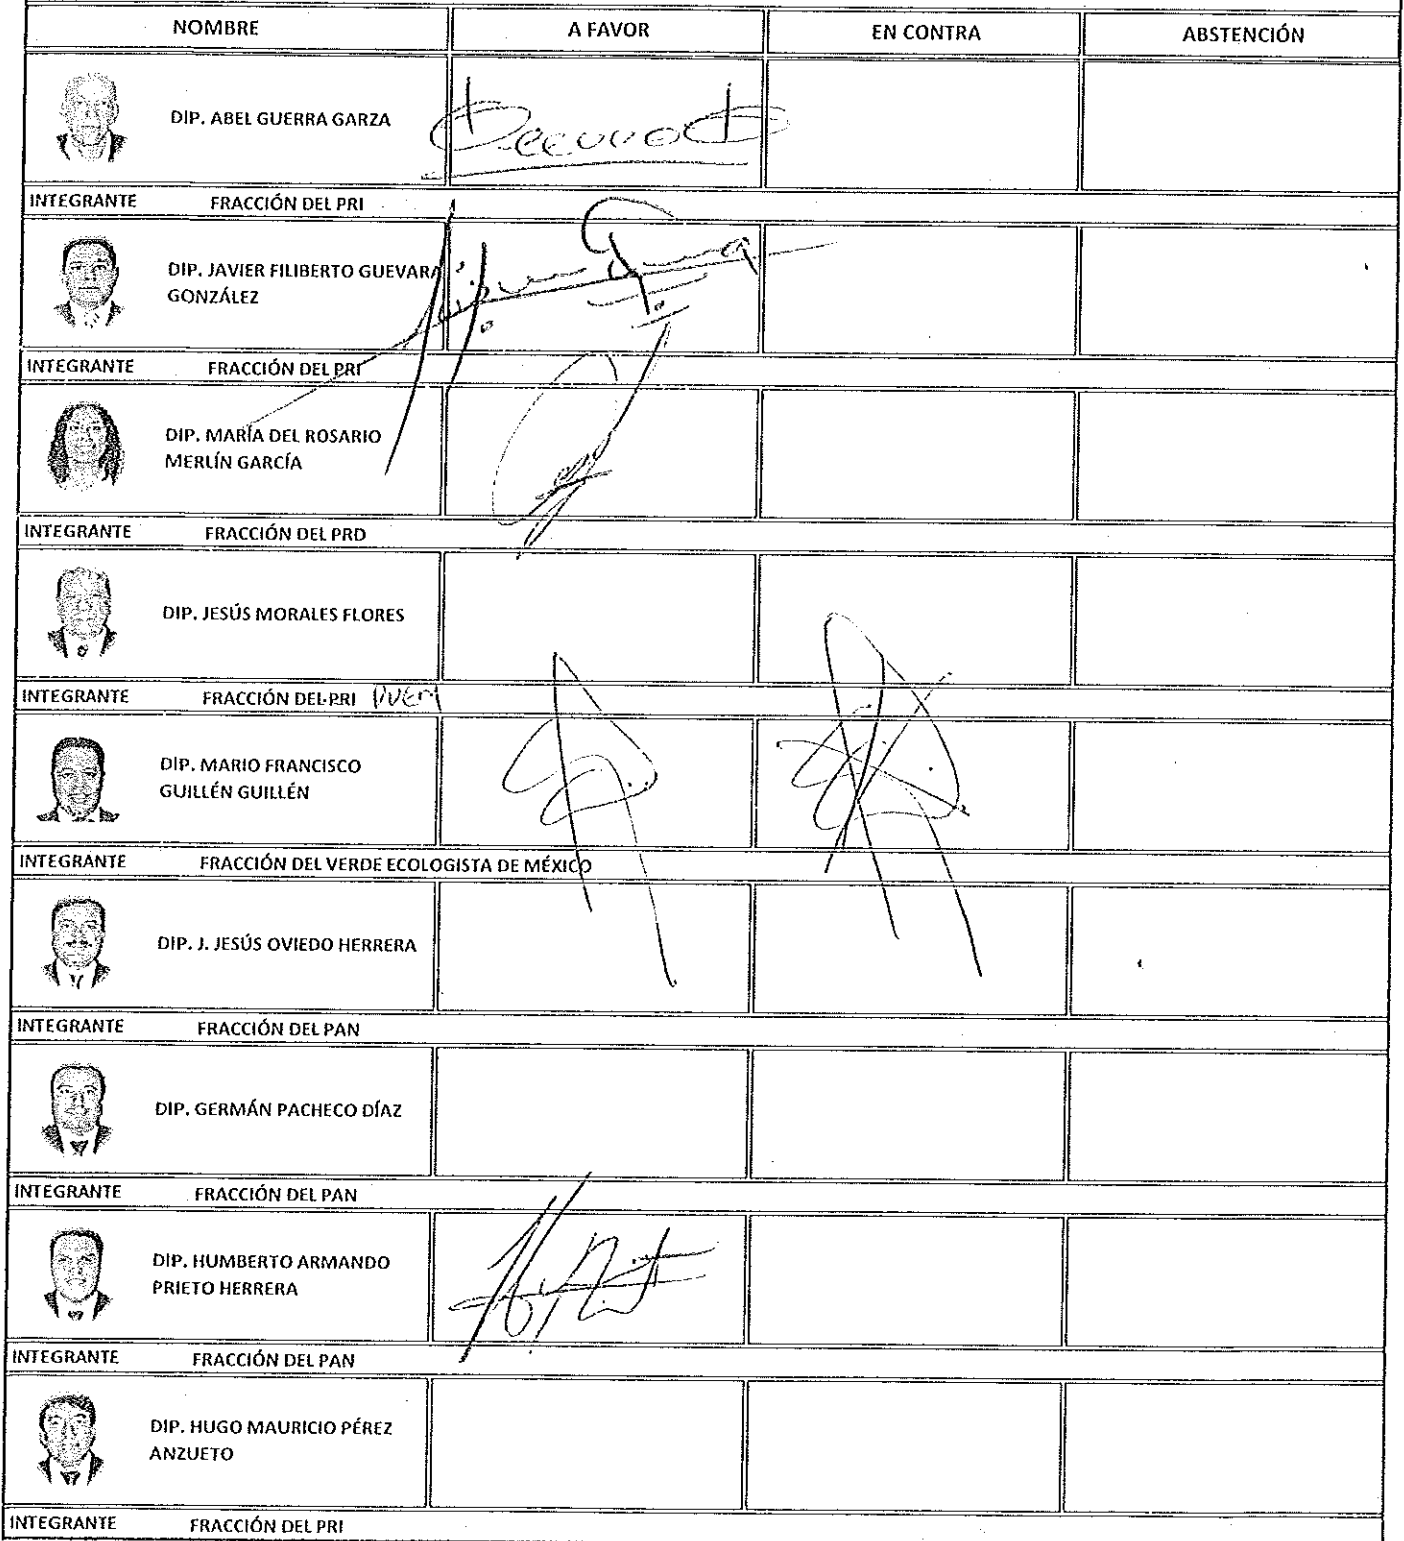 NOMBRE A FAVOR EN CONTRA ABSTENCIÓN
DIP. ABEL GUERRA GARZA
INTEGRANTE FRACCIÓN DEL PRI
DIP. JAVIER FILIBERTO GUEVARA
GONZÁLEZ
INTEGRANTE FRACCIÓN DEL PRI
DIP. MARÍA DEL ROSARIO
MERLÍN GARCÍA
INTEGRANTE FRACCIÓN DEL PRD
DIP. JESÚS MORALES FLORES
INTEGRANTE FRACCIÓN DEL PRI PVEM
DIP. MARIO FRANCISCO
GUILLÉN GUILLÉN
INTEGRANTE FRACCIÓN DEL VERDE ECOLOGISTA DE MÉXICO
DIP. J. JESÚS OVIEDO HERRERA
INTEGRANTE FRACCIÓN DEL PAN
DIP. GERMÁN PACHECO DÍAZ
INTEGRANTE FRACCIÓN DEL PAN
DIP. HUMBERTO ARMANDO
PRIETO HERRERA
INTEGRANTE FRACCIÓN DEL PAN
DIP. HUGO MAURICIO PÉREZ
ANZUETO
INTEGRANTE FRACCIÓN DEL PRI